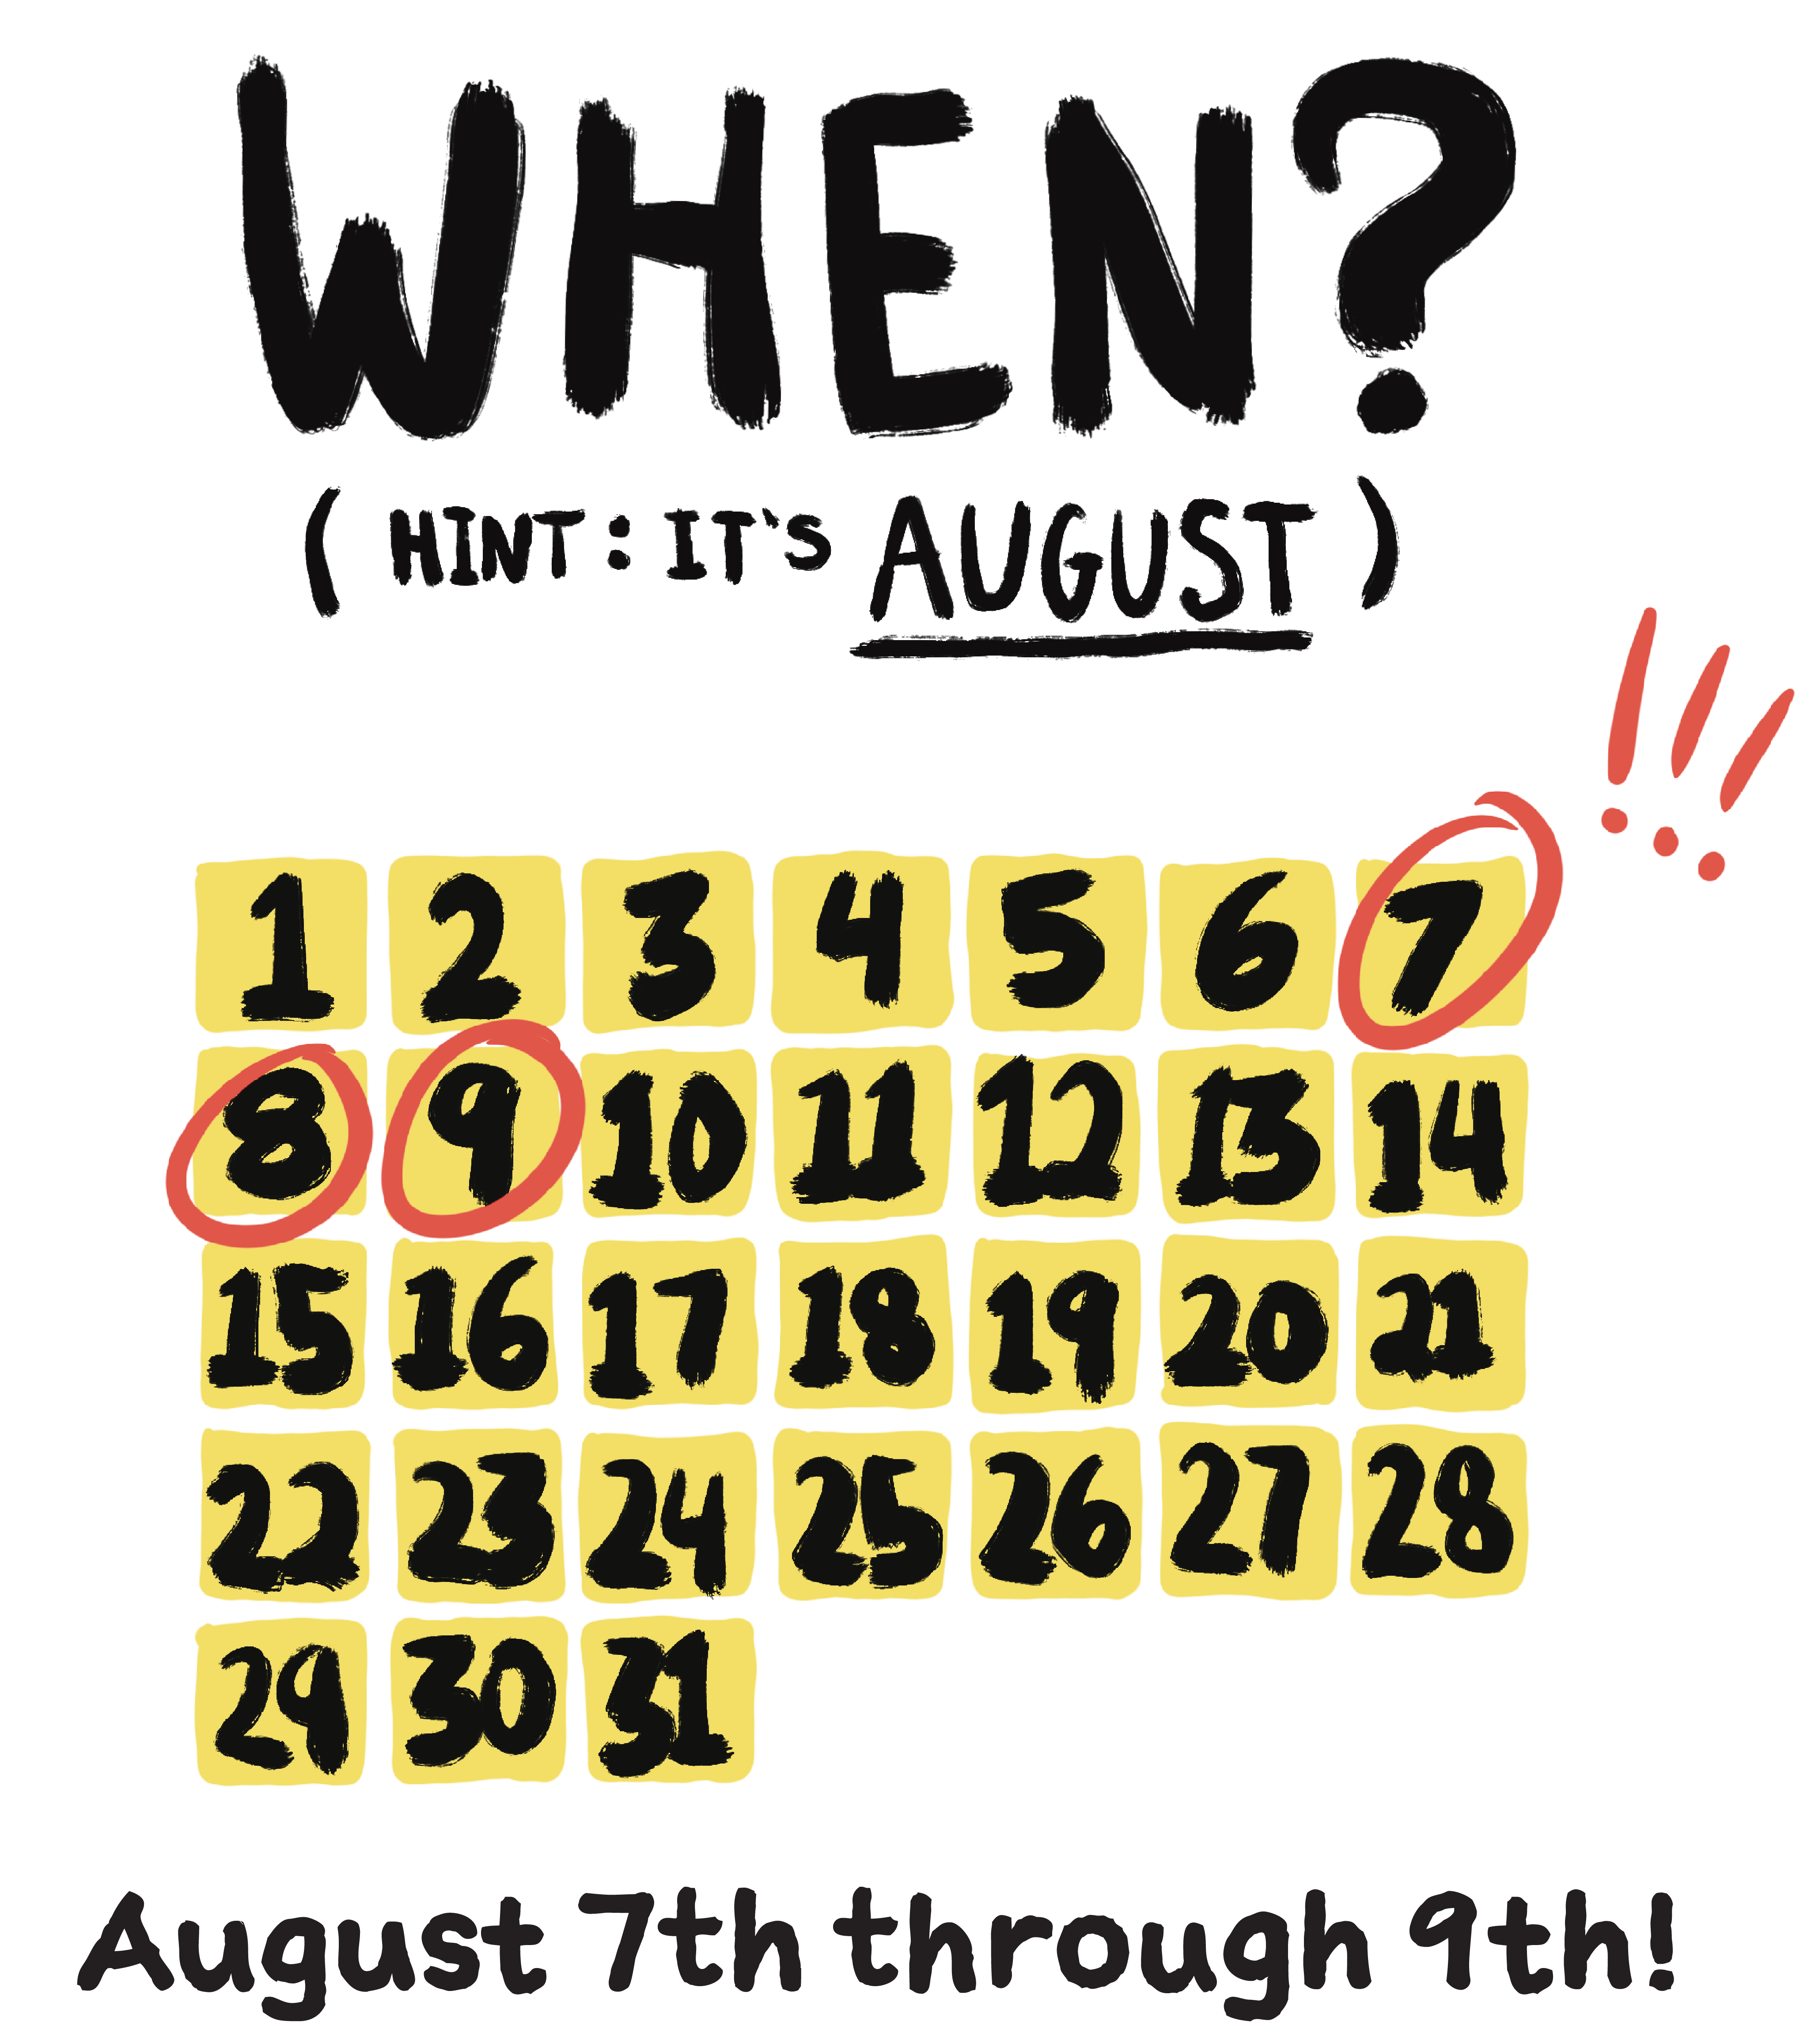 WHEN?
( HINT: IT'S AUGUST )
!!!
1 2 3 4 5 6 7
8 9 10 11 12 13 14
15 16 17 18 19 20 21
22 23 24 25 26 27 28
29 30 31
August 7th through 9th!